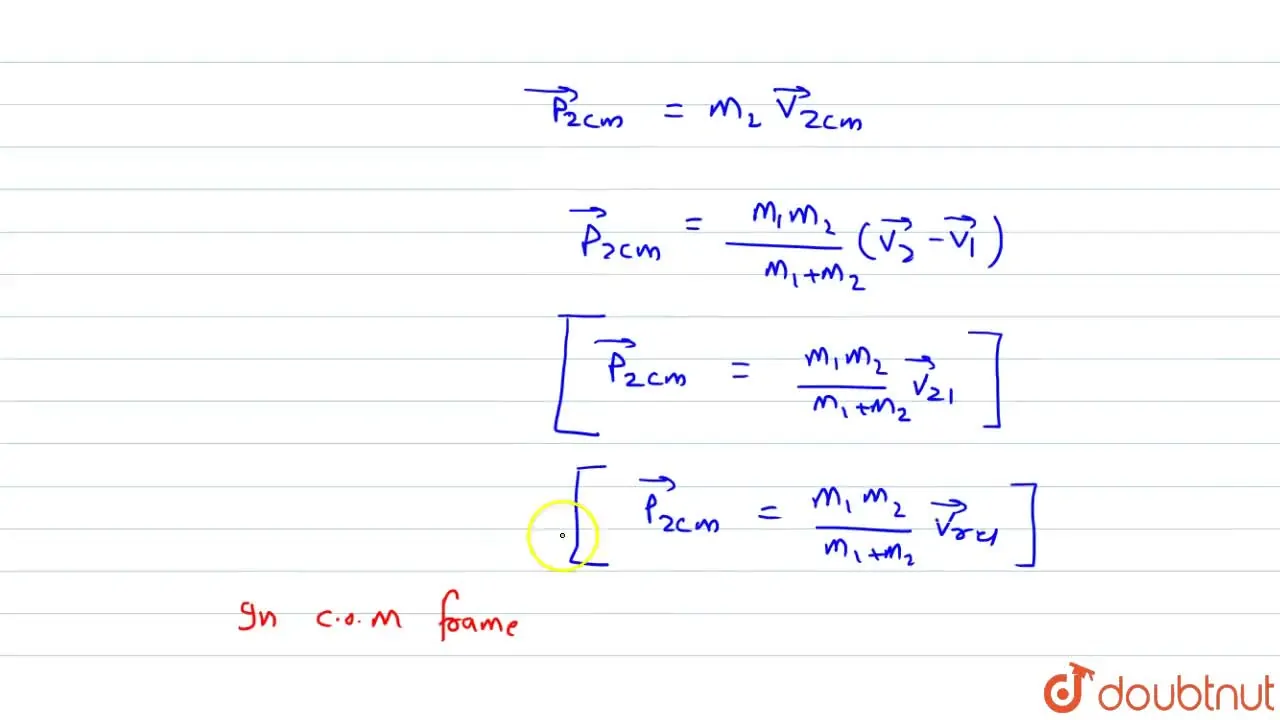 →P₂cm = m₂ →V₂cm
→P₂cm = m₁m₂/(m₁+m₂) (→V₂ - →V₁)
[→P₂cm = m₁m₂/(m₁+m₂) →V₂₁]
[→P₂cm = m₁m₂/(m₁+m₂) →Vrel]
In c.o.m frame
doubtnut